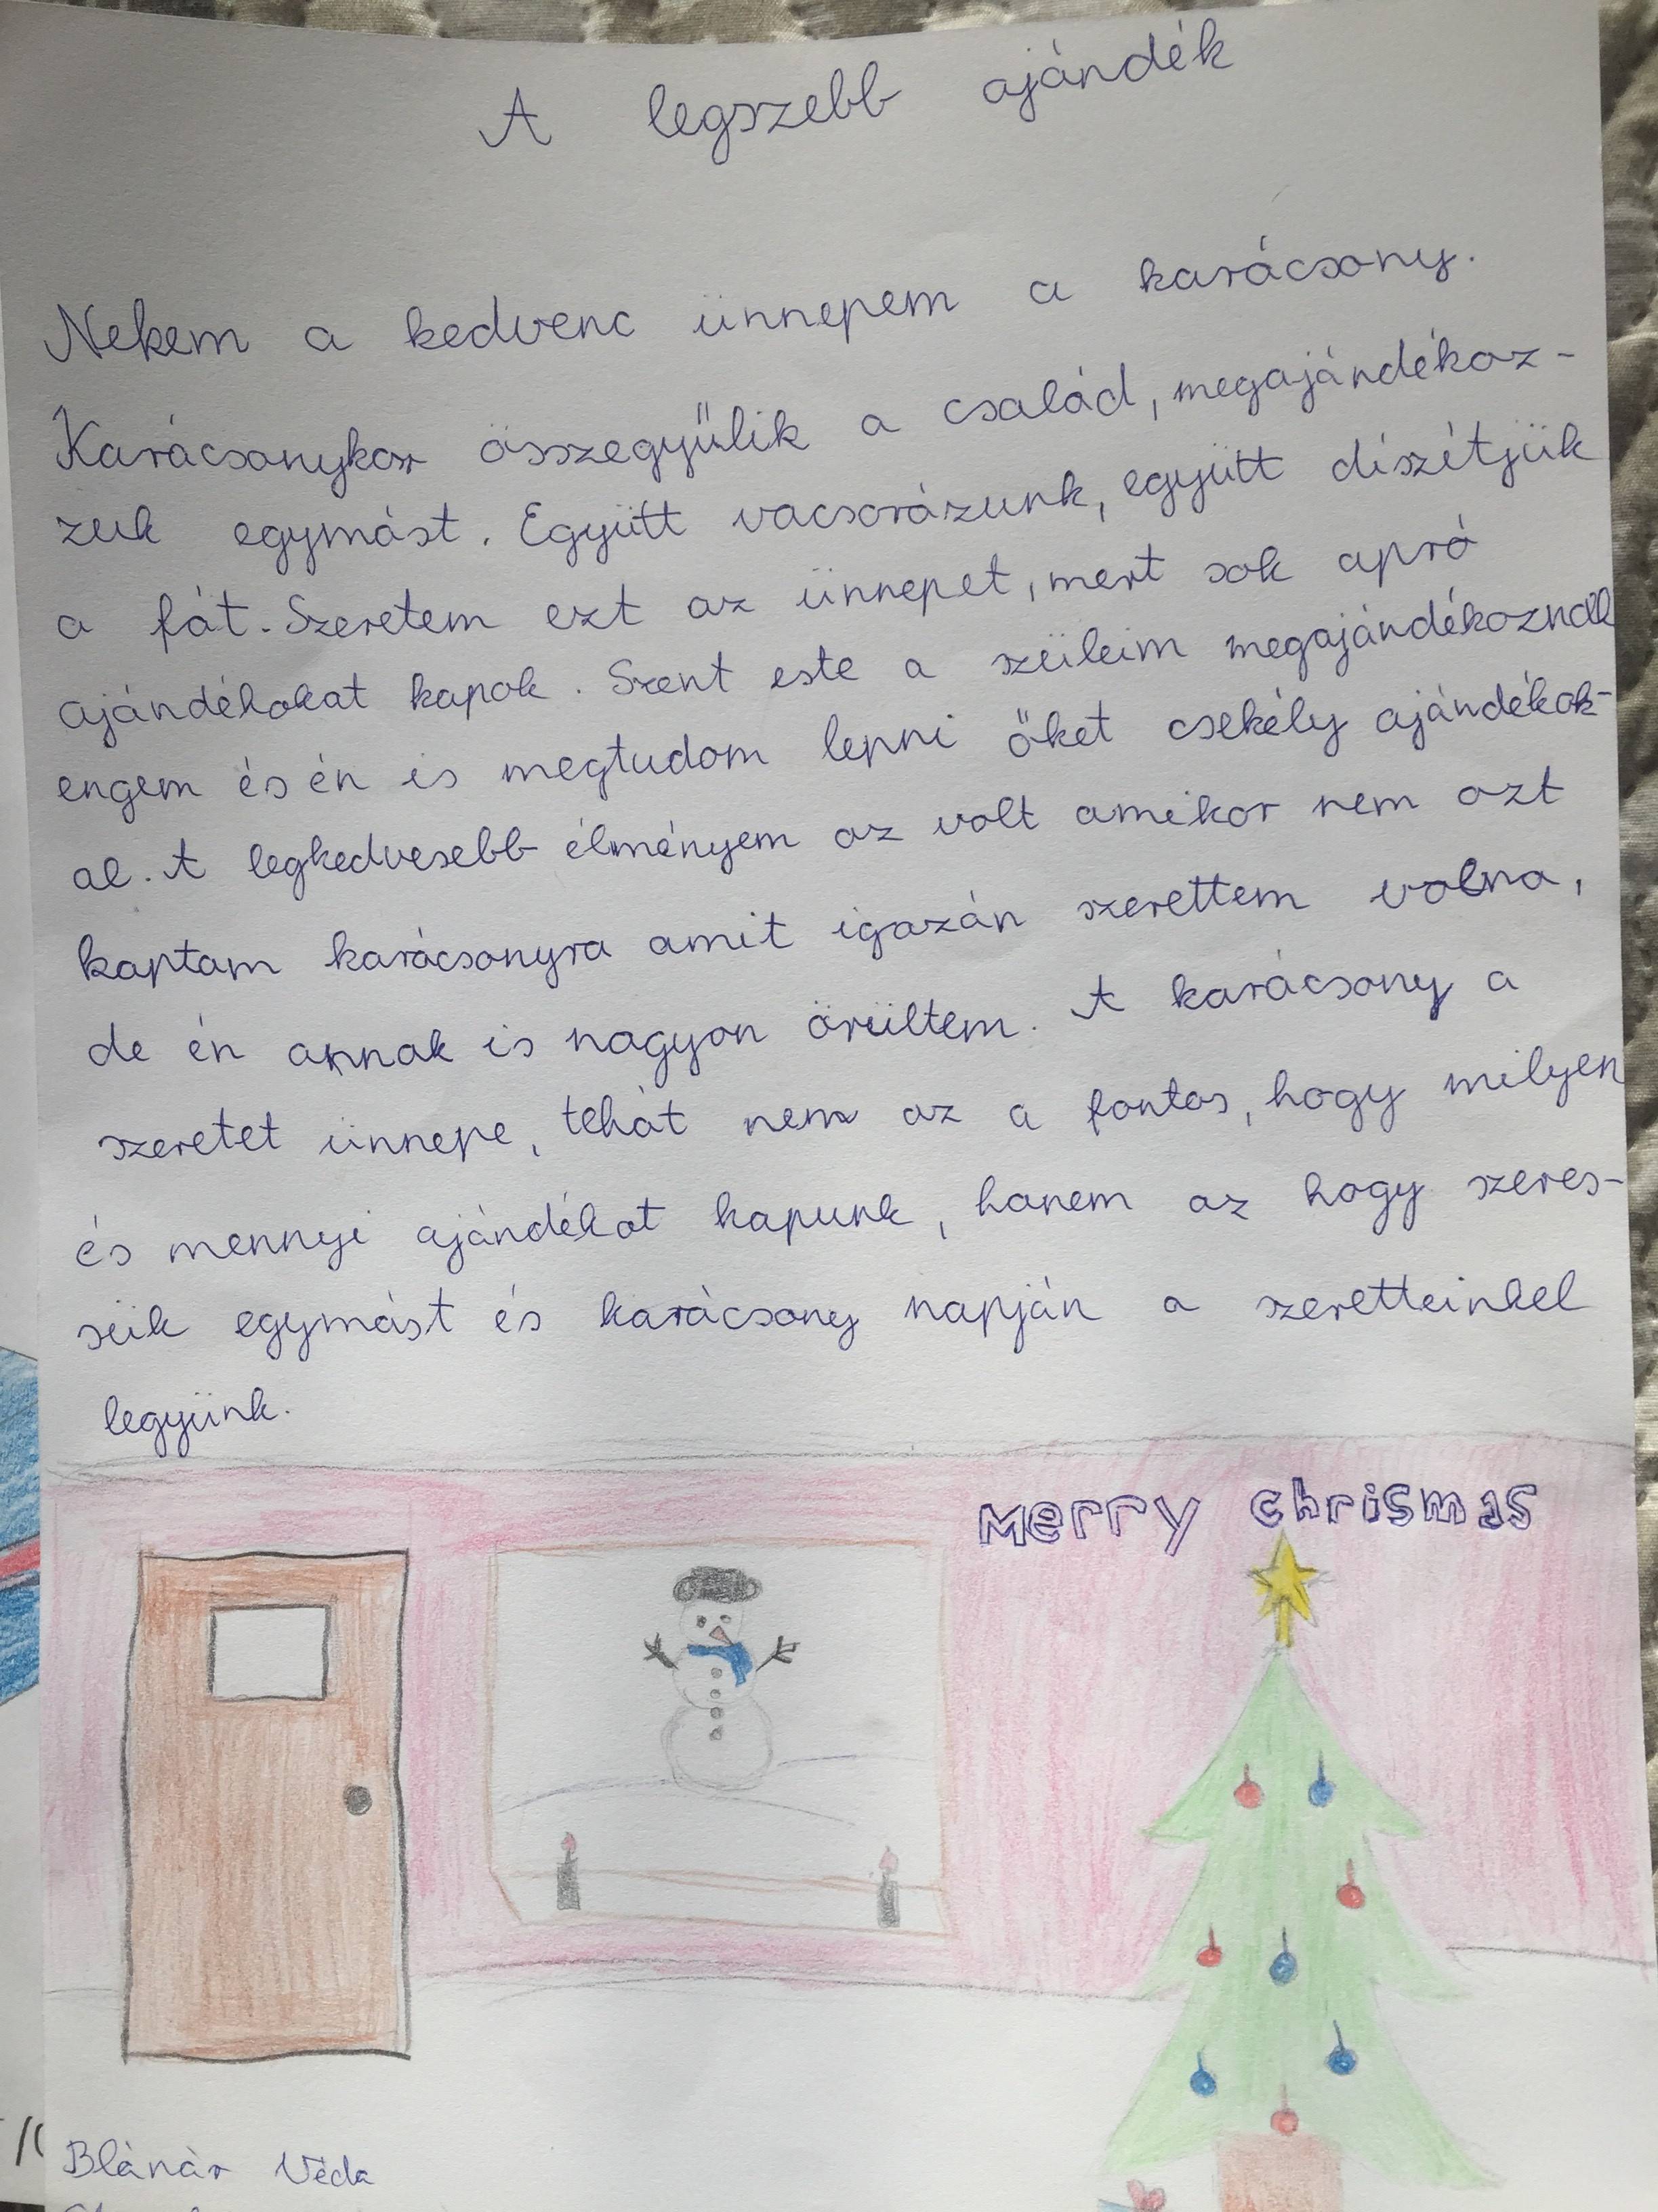 A legszebb ajándék
Nekem a kedvenc ünnepem a karácsony.
Karácsonykor összegyűlik a család, megajándékoz-
zuk egymást. Együtt vacsorázunk, együtt díszítjük
a fát. Szeretem ezt az ünnepet, mert sok apró
ajándékokat kapok. Szent este a szüleim megajándékoznak
engem és én is megtudom lepni őket csekély ajándékok-
al. A legkedvesebb élményem az volt amikor nem azt
kaptam karácsonyra amit igazán szerettem volna,
de én annak is nagyon örültem. A karácsony a
szeretet ünnepe, tehát nem az a fontos, hogy milyen
és mennyi ajándékot kapunk, hanem az hogy szeres-
sük egymást és karácsony napján a szeretteinkel
legyünk.
Merry chrismas
Blánár Véda